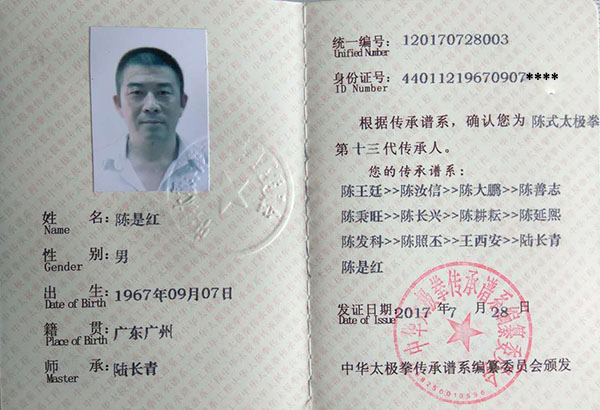 姓 名:陈是红
Name
性 别:男
Gender
出 生:1967年09月07日
Date of Birth
籍 贯:广东广州
Place of Birth
师 承:陆长青
Master
统一编号:120170728003
Unified Number
身份证号:44011219670907****
ID Number
根据传承谱系,确认您为 陈式太极拳
第十三代传承人。
您的传承谱系:
陈王廷>>陈汝信>>陈大鹏>>陈善志
陈秉旺>>陈长兴>>陈耕耘>>陈延熙
陈发科>>陈照丕>>王西安>>陆长青
陈是红
发证日期:2017年 7 月 28 日
Date of Issue
中华太极拳传承谱系编纂委员会颁发
中华太极拳传承谱系编纂委员会